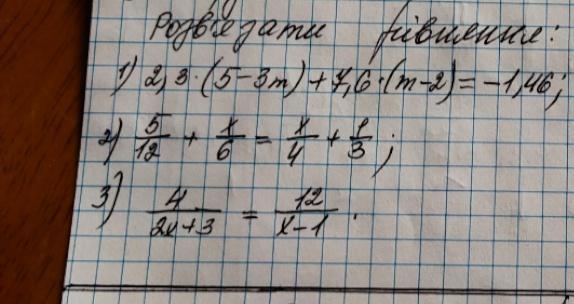 Розв'язати рівняння:
1) 2,3·(5-3m)+7,6·(m-2)=-1,46;
2) 5/12 + x/6 = x/4 + 1/3;
3) 4/(2x+3) = 12/(x-1).